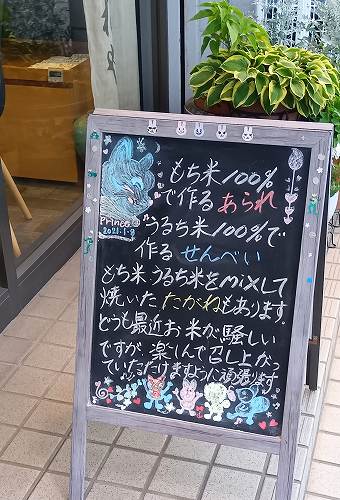 もち米100%
で作るあられ
うるち米100%で
作る せんべい
もち米うるち米をmixして
焼いた たがねもあります。
どうも最近お米が騒しい
ですが、楽しんで召し上がっ
ていただけますように頑張ります
Prince
2021.1.9